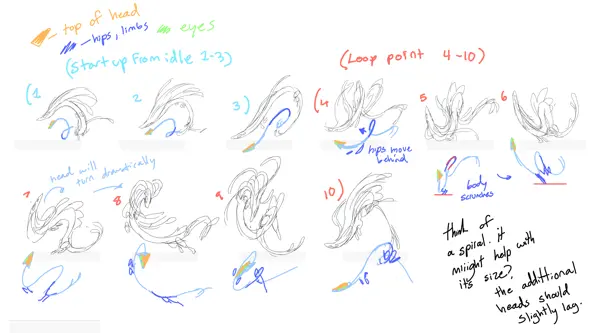 top of head
hips, limbs
eyes
(Start up from idle 2-3)
(Loop point 4-10)
(1
2
3)
(4
5
6
hips move
behind
body
scrunches
head will
turn dramatically
7
8
9
10)
think of
a spiral. it
miight help with
it's size?
the additional
heads should
slightly lag.